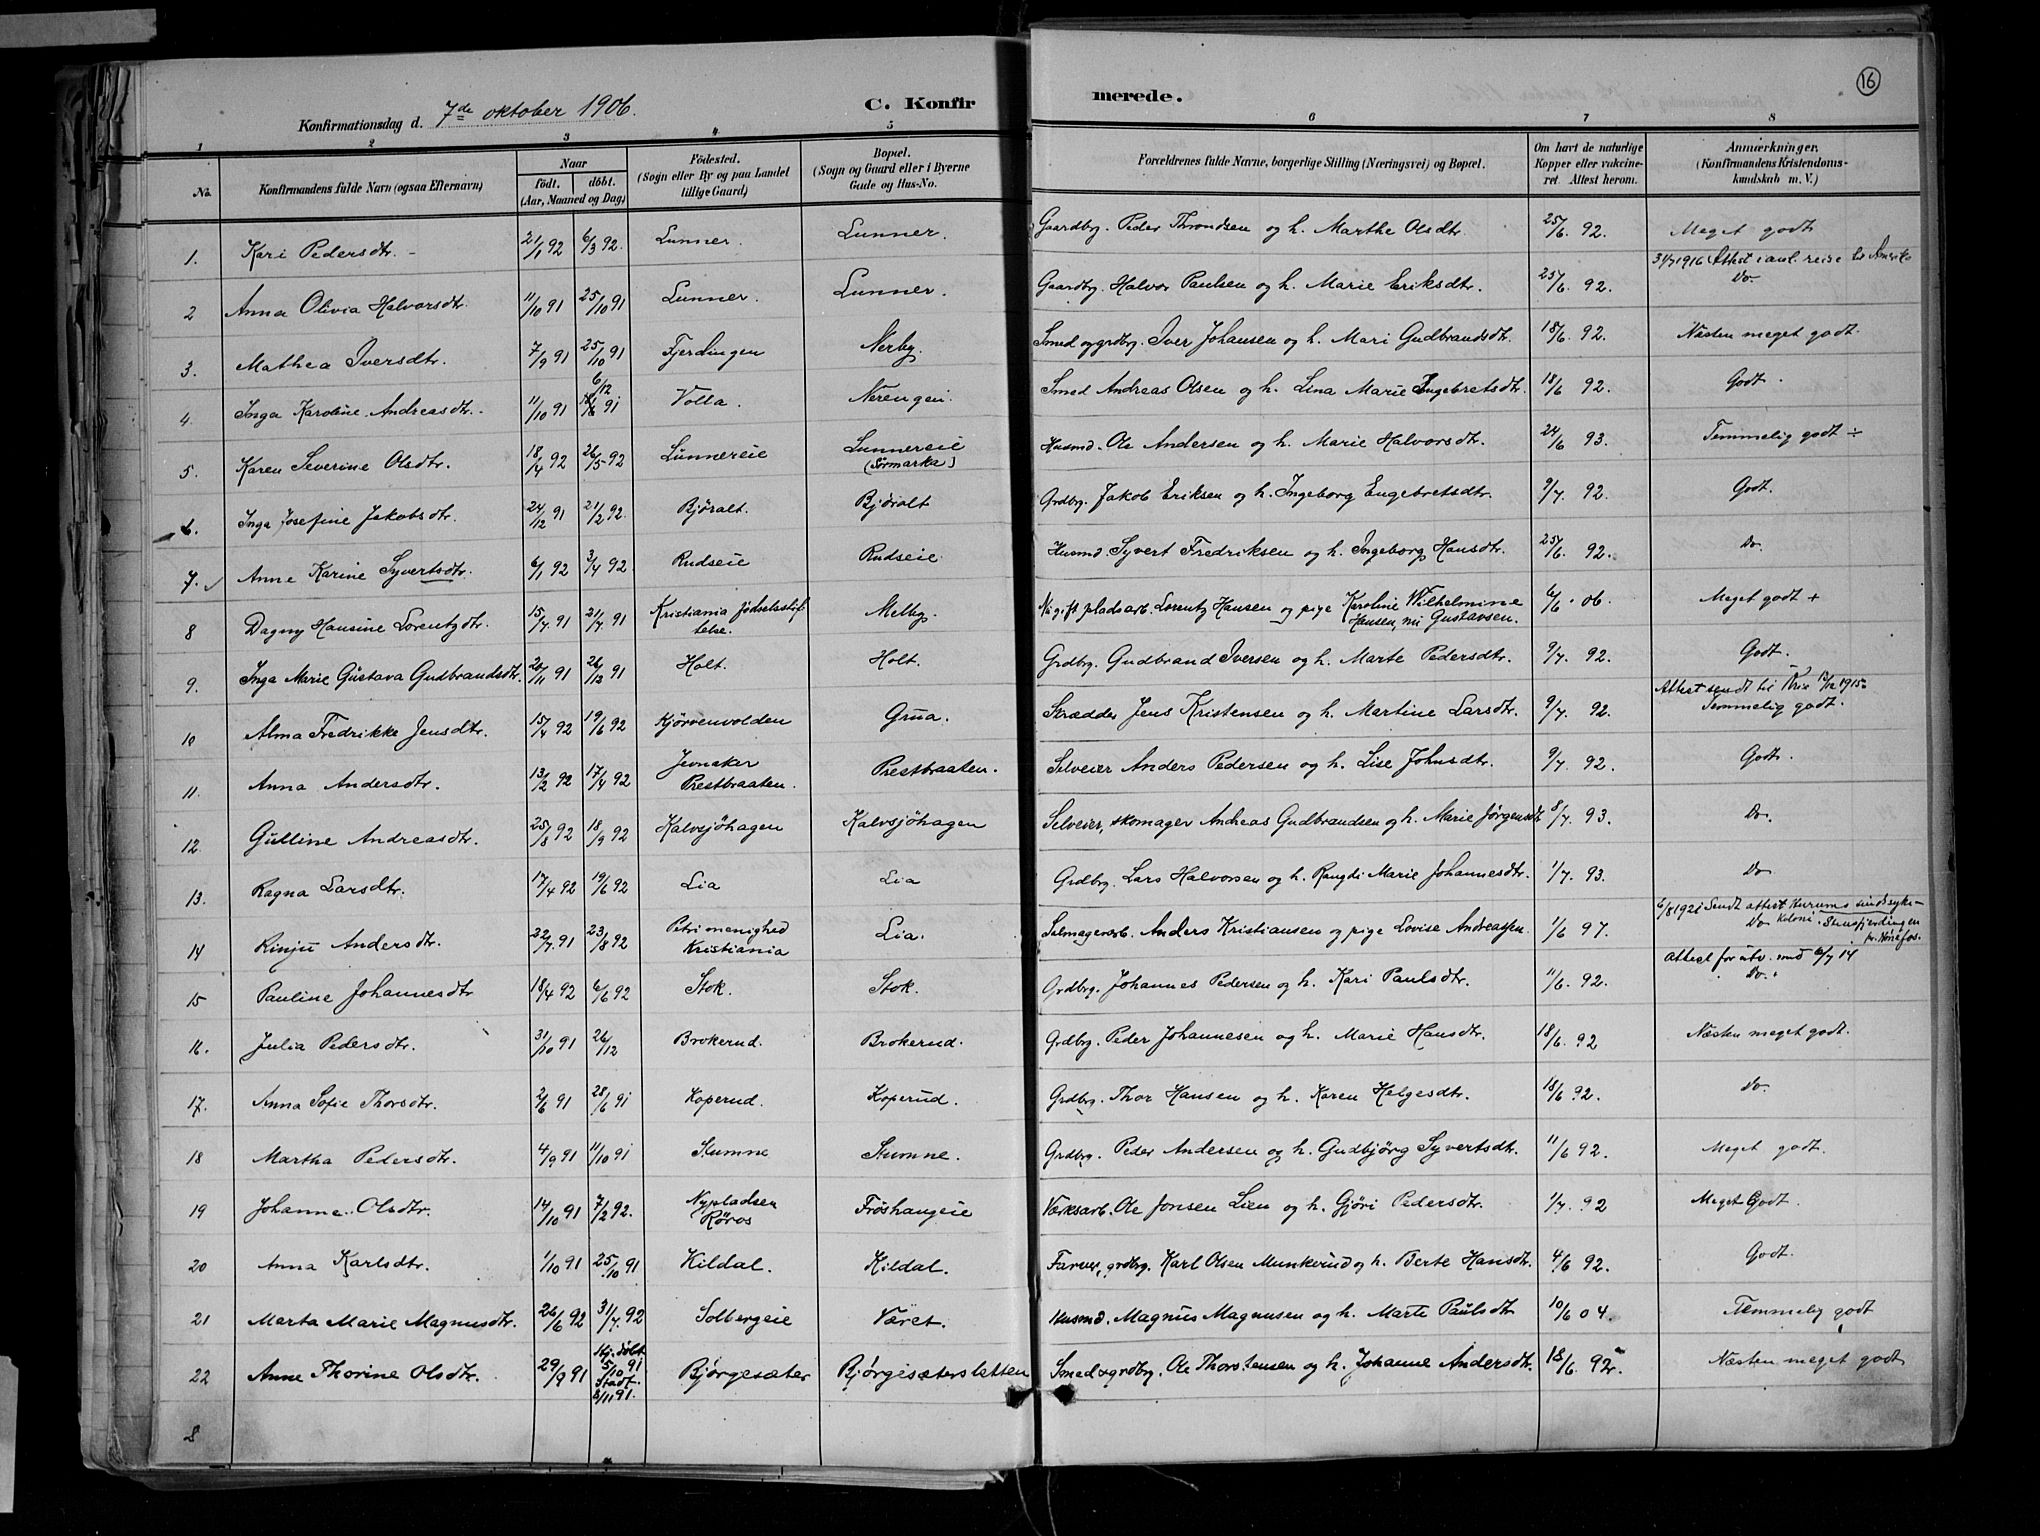 16
Konfirmationsdag d. 7de oktober 1906. C. Konfirmerede.
1 2 3 4 5 6 7 8
No. Konfirmandens fulde Navn (ogsaa Efternavn) Naar født. døbt. (Aar, Maaned og Dag) Födested. (Sogn eller By og paa Landet tillige Gaard) Bopæl. (Sogn og Gaard eller i Byerne Gade og Hus-No. Forældrenes fulde Navne, borgerlige Stilling (Næringsvei) og Bopæl. Om havt de naturlige Kopper eller vaccineret. Attest herom. Anmærkninger. (Konfirmandens Kristendomskundskab m. V.)
1. Kari Pedersdtr. 21/1 92 6/3 92. Lunner. Lunner. Gaardbr. Peder Throndsen og h. Marthe Olsdtr. 25/6. 92. Meget godt
31/7 1916 Attest i anl. reise til Amerika
2 Anna Olivia Halvorsdtr. 11/10 91 25/10 91 Lunner. Lunner. Gaardbr. Halvor Paulsen og h. Marie Eriksdtr. 25/6. 92. Do.
3. Mathea Iversdtr. 7/9 91 25/10 91 Fjerdingen Nerby. Smed og grdbr. Iver Johansen og h. Mari Gudbrandsdtr. 18/6. 92. Næsten meget godt.
4. Inga Karoline Andreasdtr. 11/10 91 6/12 91 Volla. Nerengen. Smed Andreas Olsen og h. Lina Marie Ingebretsdtr. 18/6 92. Godt.
5. Karen Severine Olsdtr. 18/4 92 26/5 92 Lunnereie Lunnereie (Sørmarka) Husmd. Ole Andersen og h. Marie Halvorsdtr. 24/6 93. Temmelig godt ÷
6. Inga Josefine Jakobsdtr. 24/12 91 21/2 92. Bjøralt Björalt Grdbr. Jakob Eriksen og h. Ingeborg Engebretsdtr. 9/7. 92. Godt.
7. Anne Karine Syvertsdtr. 6/1 92 3/4 92 Rudseie Rudseie. Husmd Syvert Fredriksen og h. Ingeborg Hansdtr. 25/6. 92. Do.
8 Dagny Hansine Lorentzdtr. 15/7 91 21/7 91 Kristiania fødselsstiftelse. Melby. Ugift pladsarb. Lorentz Hansen og pige Karoline Wilhelmine Hansen, nu Gustavsen. 6/6 06. Meget godt +
9. Inga Marie Gustava Gudbrandsdtr. 20/11 91 26/12 91 Holt. Holt. Grdbr. Gudbrand Iversen og h. Marte Pedersdtr. 9/7. 92. Godt.
Attest sendt til Kria 13/12 1915.
10 Alma Fredrikke Jensdtr. 15/4 92 19/6 92 Kjörvenvolden Grua. Skrædder Jens Kristensen og h. Martine Larsdtr. 9/7 92. Temmelig godt.
11. Anna Andersdtr. 13/2 92 17/4 92 Jevnaker Prestbraaten. Prestbraaten. Selveier Anders Pedersen og h. Lise Johnsdtr. 9/7 92. Godt.
12. Gulline Andreasdtr. 25/8 92 18/9 92 Kalvsjöhagen Kalvsjöhagen Selveier, skomager Andreas Gudbrandsen og h. Marie Jørgensdtr 8/7. 93. Do.
13. Ragna Larsdtr. 17/4 92 19/6 92 Lia Lia Grdbr. Lars Halvorsen og h. Rangdi Marie Johannesdtr. 1/7. 93. Do.
6/8 1921 Sendt attest Kurums sindssyke-Koloni, Stensfjerdingen pr. Hønefos.
14 Rinju Andersdtr. 22/7 91 23/8 92 Petri menighed Kristiania Lia. Selmagerarb. Anders Kristiansen og pige Lovise Andreassen. 1/6 97. Do
15 Pauline Johannesdtr 18/4 92 6/6 92 Stok. Stok. Grdbr. Johannes Pedersen og h. Kari Paulsdtr. 11/6. 92. Do.
16. Julia Pedersdtr. 31/10 91 26/12 Brokerud. Brokerud. Grdbr. Peder Johannesen og h. Marie Hansdtr. 18/6. 92 Næsten meget godt.
17. Anna Sofie Thorsdtr. 2/6 91 28/6 91 Koperud. Koperud. Grdbr. Thor Hansen og h. Karen Helgesdtr. 18/6 92. Do.
18 Martha Pedersdtr. 4/9 91 11/10 91 Skumne Skumne. Grdbr. Peder Andersen og h. Gudbjörg Syvertsdtr. 11/6 92. Meget godt.
19 Johanne Olsdtr. 14/10 91 7/2 92. Nypladsen Röros Fröshaugeie Værksarb. Ole Jonsen Lien og h. Gjöri Pedersdtr. 1/7. 92 Meget Godt.
20 Anna Karlsdtr. 1/10 91 25/10 91 Kildal. Kildal. Farver, grdbr. Karl Olsen Munkerud og h. Berte Hansdtr. 4/6 92. Godt.
21 Marta Marie Magnusdtr. 26/6 92 31/7 92 Solbergeie Været. Husmd. Magnus Magnusen og h. Marte Paulsdtr 10/6 04. Temmelig godt
22 Anne Thorine Olsdtr. 29/9 91 Hj. döbt 5/10 91 Stadf. 8/11 91. Bjørgesæter Bjørgesæterslætten Smed & grdbr. Ole Thorstensen og h. Johanne Andersdtr. 18/6. 92. Næsten meget godt